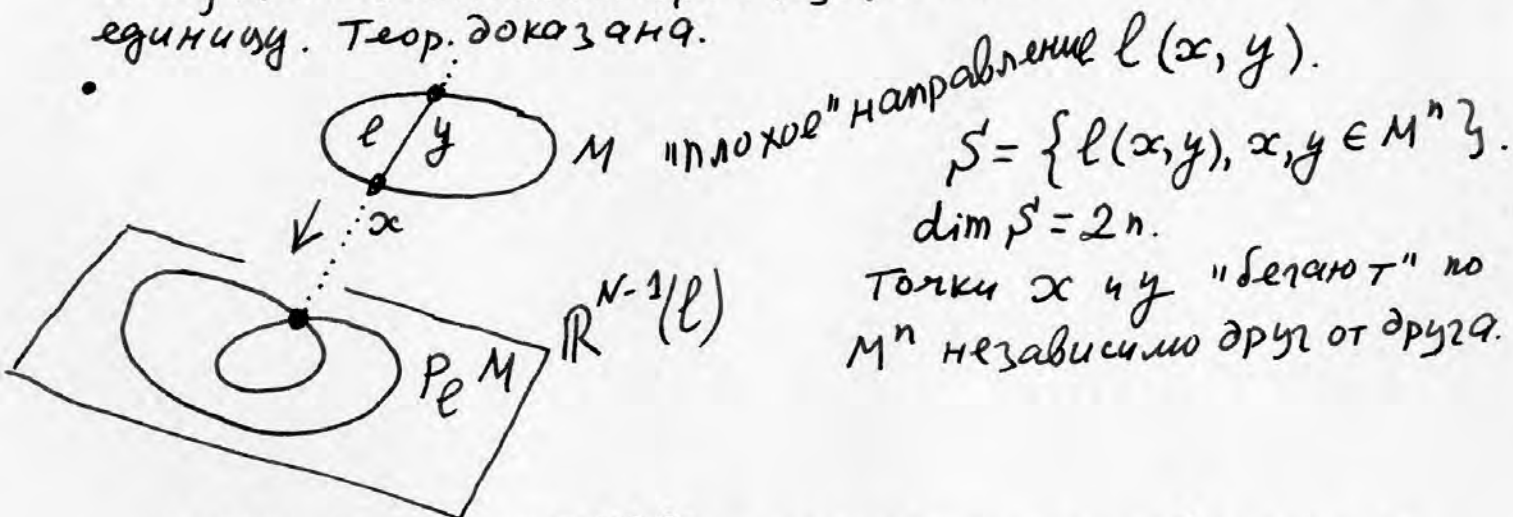 единицу. Теор. доказана.
"плохое" направление l(x, y).
l y M
x
S = {l(x,y), x,y ∈ Mⁿ}.
dim S = 2n.
Точки x и y "бегают" по
Mⁿ независимо друг от друга.
ℝᴺ⁻¹(l)
Pₗ M